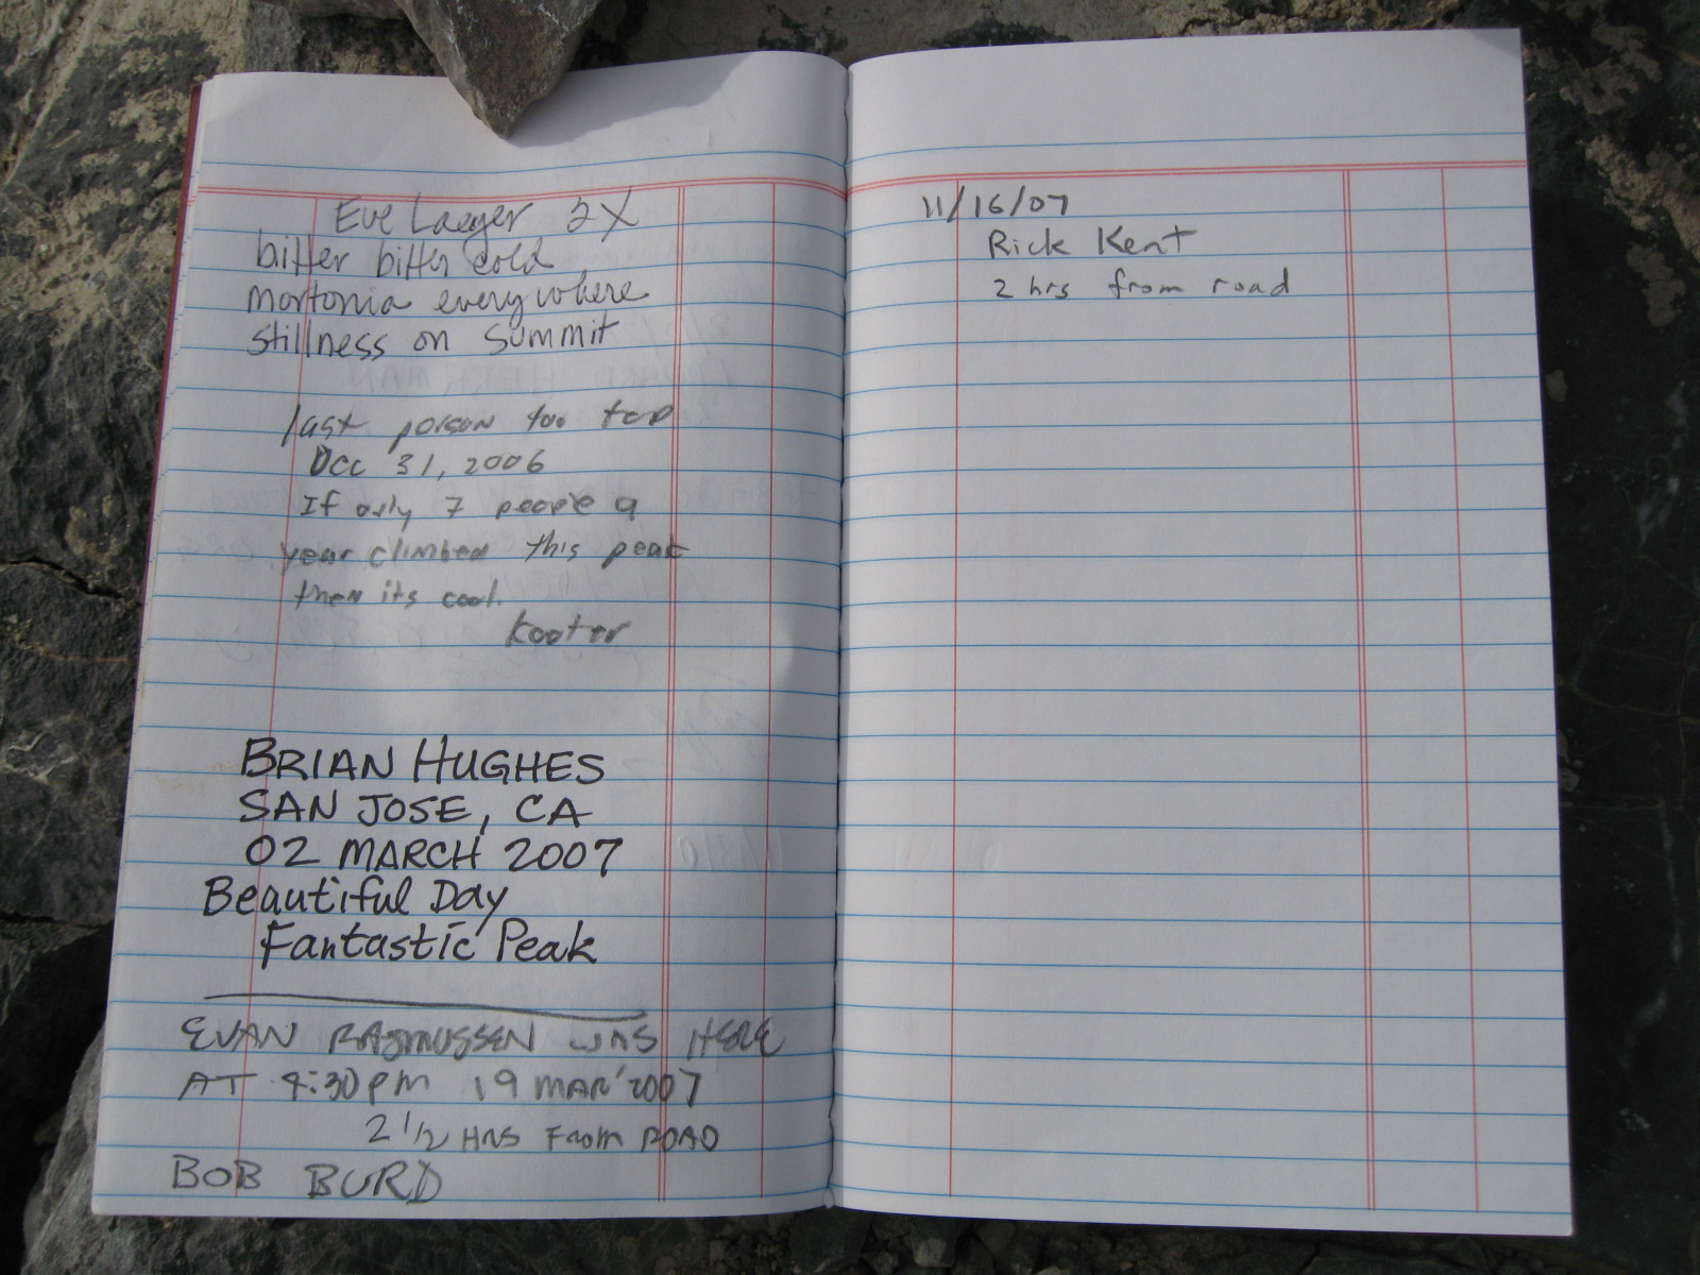 Eve Laeger 2X
bitter bitter cold
mortonia everywhere
stillness on summit
last person too top
Dec 31, 2006
If only 7 people a
year climbed this peak
then its cool.
Kooter
BRIAN HUGHES
SAN JOSE, CA
02 MARCH 2007
Beautiful Day
Fantastic Peak
EVAN RASMUSSEN WAS HERE
AT 4:30 PM 19 MAR '2007
2 1/2 HRS FROM ROAD
BOB BURD
11/16/07
Rick Kent
2 hrs from road